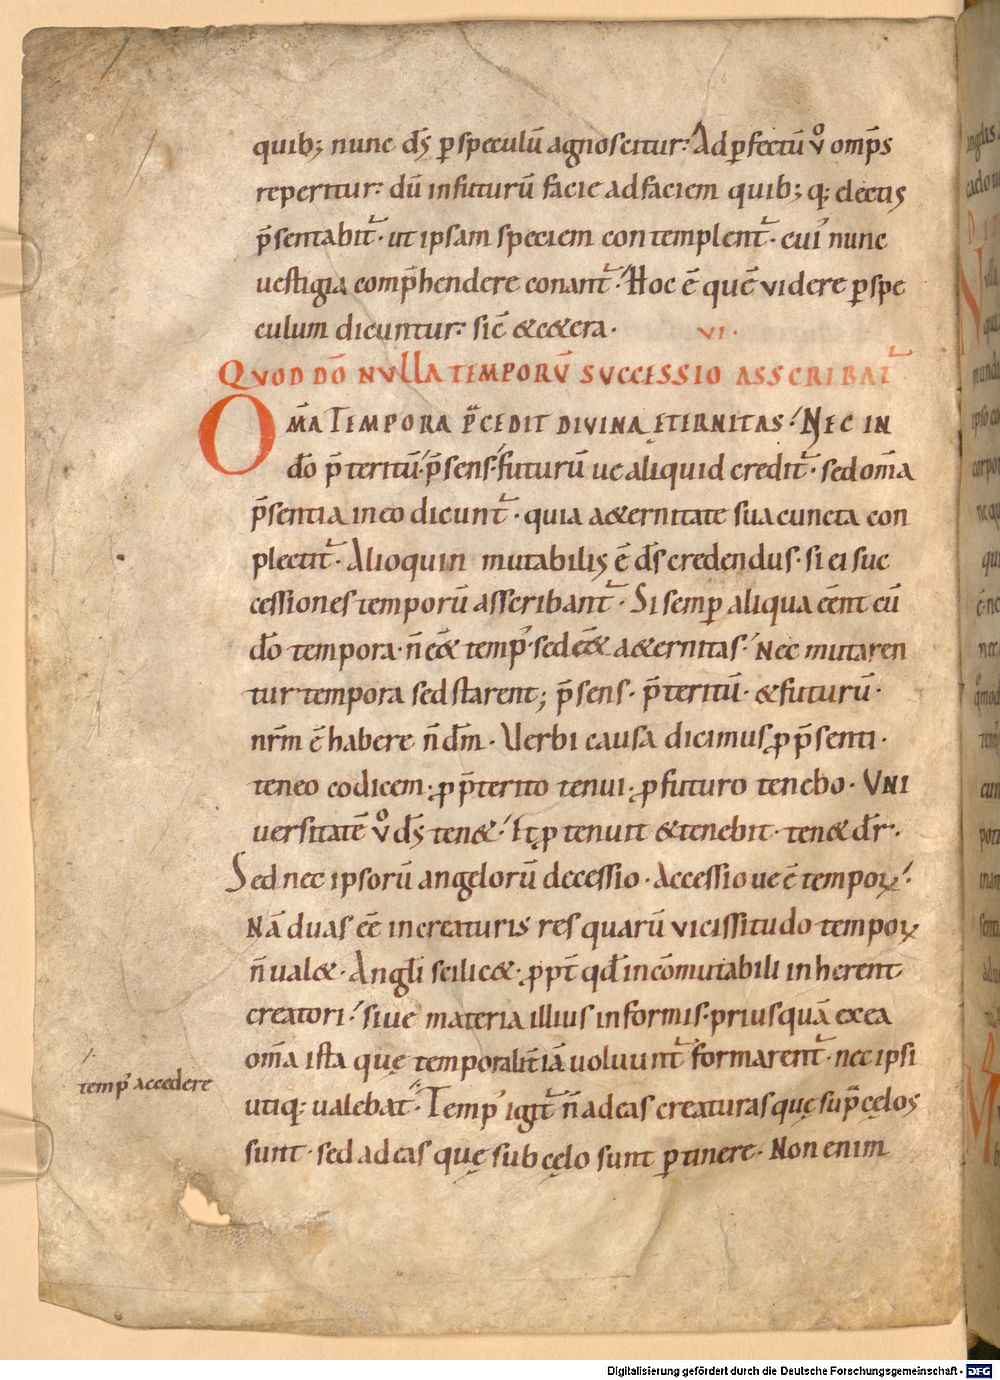 quib; nunc d̄s p̲ speculū agnoscitur. Ad p̲fectū v̊ omp̄s
reperitur. dū in futurū facie ad faciem quib; q; electis
p̄sentabit᷑. ut ipsam speciem contemplent᷑. cui᷒ nunc
uestigia comp̄hendere conant᷑. Hoc ē quē videre p̲ spe
culum dicuntur. sic̄ & c&era. VI.
QUOD DŌ NULLA TEMPORŪ SUCCESSIO ASSCRIBAT᷑
Om̄a TEMPORA p̄CEDIT DIVINA ETERNITAS. NEC IN
d̄o p̄teritū. p̄sens. futurū ue aliquid credit᷑. sed om̄a
p̄sentia in eo dicunt᷑. quia a&ernitate sua cuncta con
plectit᷑. Alioquin mutabilis ē d̄s credendus. si ei suc
cessiones temporū asscribant᷑. Si semp̲ aliqua eēnt cū
d̄o tempora. n̄ eē& temp᷒. sed eē& a&ernitas. Nec mutaren
tur tempora sed starent; p̄sens. p̄teritū. & futurū.
nr̄m ē habere n̄ d̄m. Verbi causa dicimus ꝓ p̄senti.
teneo codicem. ꝓ p̄terito tenui. ꝓ futuro tenebo. UNI
uersitatē v̊ d̄s ten&. Itq̲ ꝓ tenuit & tenebit. ten& dr̄.
Sed nec ipsorū angelorū decessio. Accessio ue ē tempoꝝ.
Nā duas eē in creaturis res quarū vicissitudo tempoꝝ
n̄ ual&. Angl̄i scilic&. ꝓpt̄ qd̄ incōmutabili inherent
creatori. siue materia illius informis. priusquā ex ea
om̄a ista quę temporalit̄ iā uoluunt᷑ formarent᷑. nec ipsi
utiq; ualebat. Temp᷒ igit᷑ n̄ ad eas creaturas quę sup̲ cęlos
sunt. sed ad eas quę sub cęlo sunt p̲tinere. Non enim
temp᷒ accedere
Digitalisierung gefördert durch die Deutsche Forschungsgemeinschaft - DFG